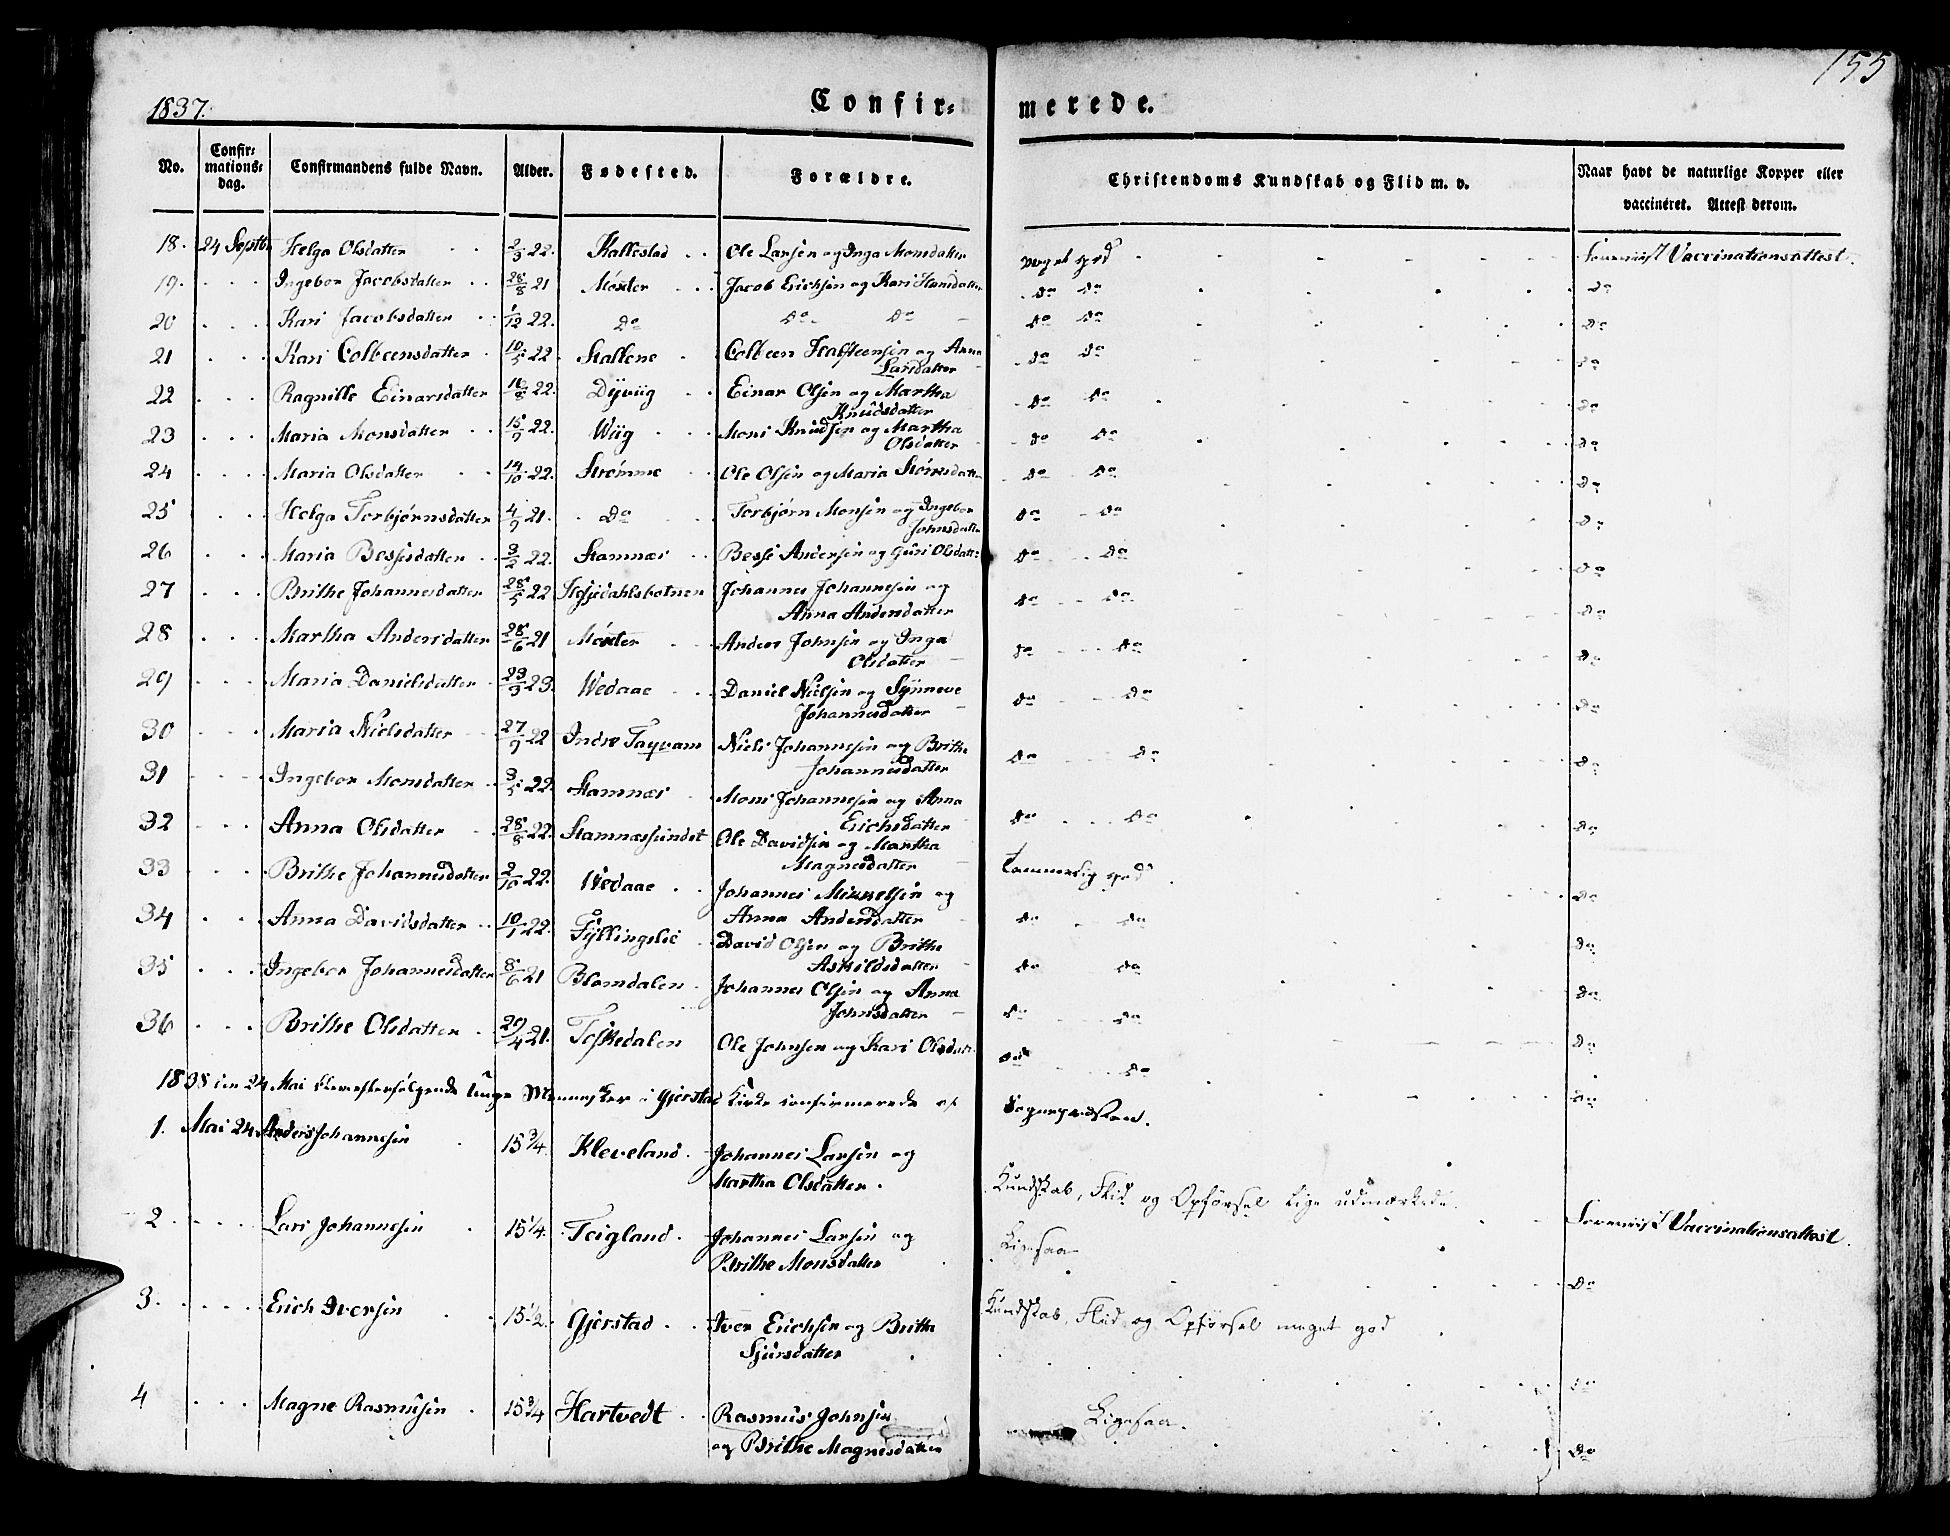 155
1837.
Confir- merede.
No. Confir-mations-dag. Confirmandens fulde Navn. Alder. Fødested. Forældre. Christendoms Kundskab og Flid m. v. Naar havt de naturlige Kopper eller vaccineret. Attest derom.
18. 24 Septbr Helga Olsdatter 2/3 22. Kallestad Ole Larsen og Inga Monsdatter meget god Vaccinationsattest
19. Ingebor Jacobsdatter 28/8 21 Møster Jacob Erichsen og Kari Hansdatter do do do
20 Kari Jacobsdatter 1/12 22. do do do do do do
21 Kari Colbeensdatter 10/5 22 Stallene Colbeen Halsteensen og Anna Larsdatter do do do
22 Ragnille Einarsdatter 16/8 22. Dyviig Einar Olsen og Martha Knudsdatter do do do
23 Maria Monsdatter 15/9 22. Wiig Mons Knudsen og Martha Olsdatter do do do
24 Maria Olsdatter 14/10 22. Strømme Ole Olsen og Maria do do do
25 Helga Torbjørnsdatter 4/9 21. do Torbjørn Monsen og Ingebor Johnsdatter do do do
26 Maria Bessesdatter 3/2 22. Stamnæs Bessi Andersen og Guri Olsdatter do do do
27 Brithe Johannesdatter 28/5 22 Johannes Johannesen og Anna Andersdatter do do do
28 Martha Andersdatter 28/6 21 Møster Anders Johnsen og Inga Olsdatter do do do
29 Maria Danielsdatter 23/3 23. Wedaae Daniel Nielsen og Synneve Johannesdatter do do do
30 Maria Nielsdatter 27/9 22 Indre Taqvam Niels Johannesen og Brithe Johannesdatter do do do
31 Ingebor Monsdatter 3/5 22. Stamnæs Mons Johannesen og Anna Erichsdatter do do do
32 Anna Olsdatter 28/8 22. Stamnæssundet Ole Davidsen og Martha Magnesdatter temmelig god do
33 Brithe Johannesdatter 2/10 22. Wedaae Johannes Mikkelsen og Anna Andersdatter do do do
34 Anna Davidsdatter 10/1 22. Fyllingslie David Olsen og Brithe Askildsdatter do do do
35 Ingebor Johannesdatter 8/6 21 Blomdalen Johannes Olsen og Anna Johnsdatter do do do
36 Brithe Olsdatter 29/4 21. Toskedalen Ole Johnsen og Kari Olsdatter do do do
1838 den 24 Mai bleve efterfølgende unge Mennesker i Gjerstad Kirke confirmerede af Sognepræsten.
1. Mai 24 Anders Johannesen 15 3/4 Kleveland. Johannes Larsen og Martha Olsdatter. Kundskab, Flid og Opførsel lige udmærkede. Vaccinationsattest.
2 Lars Johannesen 15 1/4. Teigland. Johannes Larsen og Brithe Monsdatter Ligesaa do
3. Erich Iversen 15 1/2. Gjerstad Iver Erichsen og Britha Sjursdatter Kundskab, Flid og Opførsel meget god do
4 Magne Rasmusen 15 3/4 Hartvedt Rasmus Johnsen og Brithe Magnesdatter Ligesaa. do